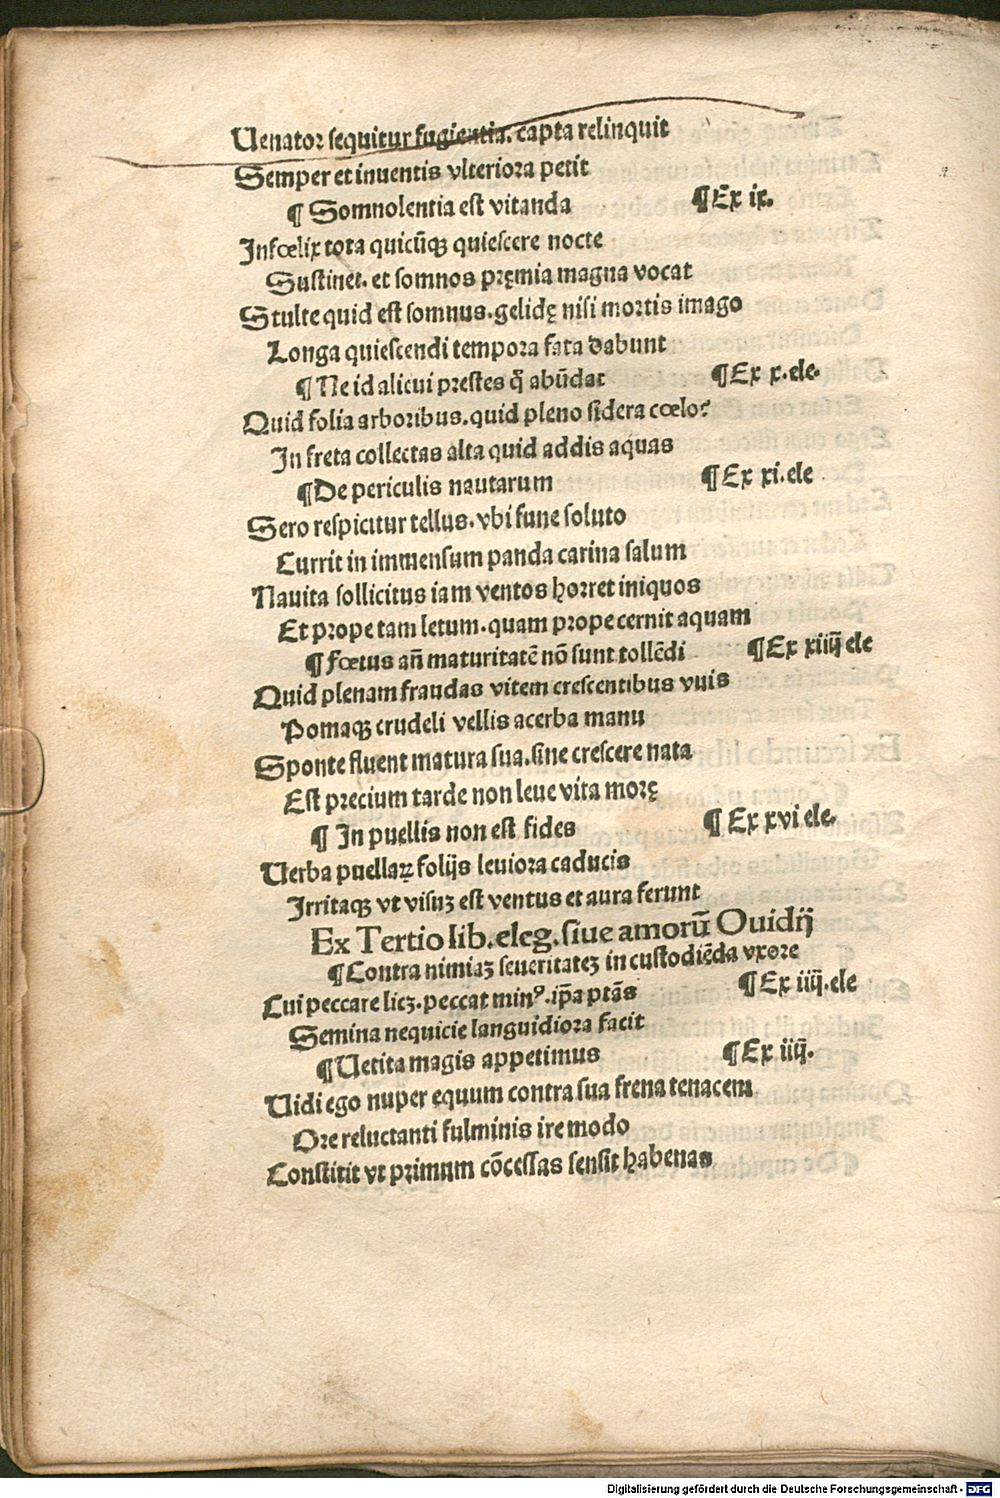 Uenator sequitur fugientia. capta relinquit
Semper et inventis vlteriora petit
¶ Somnolentia est vitanda ¶ Ex ix.
Infœlix tota quicūqꝫ quiescere nocte
Sustinet. et somnos pręmia magna vocat
Stulte quid est somnus. gelidę nisi mortis imago
Longa quiescendi tempora fata dabunt
¶ Ne id alicui prestes q̄ abūdat ¶ Ex x. ele.
Quid folia arboribus. quid pleno sidera cœlo?
In freta collectas alta quid addis aquas
¶ De periculis nautarum ¶ Ex xi. ele
Sero respicitur tellus. vbi fune soluto
Currit in immensum panda carina salum
Navita sollicitus iam ventos horret iniquos
Et prope tam letum. quam prope cernit aquam
¶ Fœtus añ maturitatē nō sunt tollēdi ¶ Ex xiiij ele
Quid plenam fraudas vitem crescentibus vuis
Pomaqꝫ crudeli vellis acerba manu
Sponte fluent matura sua. sine crescere nata
Est precium tarde non leue vita morę
¶ In puellis non est fides ¶ Ex xvi ele.
Uerba puellaꝝ folijs leuiora caducis
Irritaqꝫ vt visuꝫ est ventus et aura ferunt
Ex Tertio lib. eleg. siue amorū Ouidij
¶ Contra nimiaꝫ seueritateꝫ in custodiēda vxore
Cui peccare licꝫ. peccat minꝰ. ip̄a ptās ¶ Ex iiij. ele
Semina nequicie languidiora facit
¶ Uetita magis appetimus ¶ Ex iiij.
Uidi ego nuper equum contra sua frena tenacem
Ore reluctanti fulminis ire modo
Constitit vt primum cōcessas sensit habenas
Digitalisierung gefördert durch die Deutsche Forschungsgemeinschaft - DFG